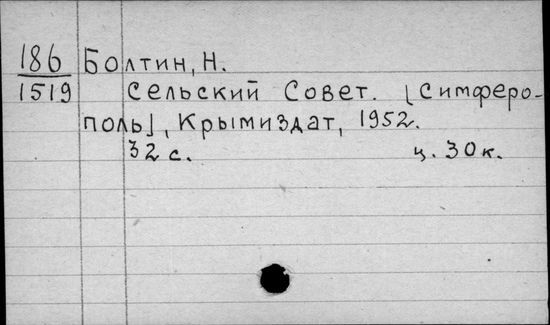 186 Болтин, Н.
1519 Сельский Совет. [Симферо-
поль], Крымиздат, 1952.
32 с. ц. 30 к.